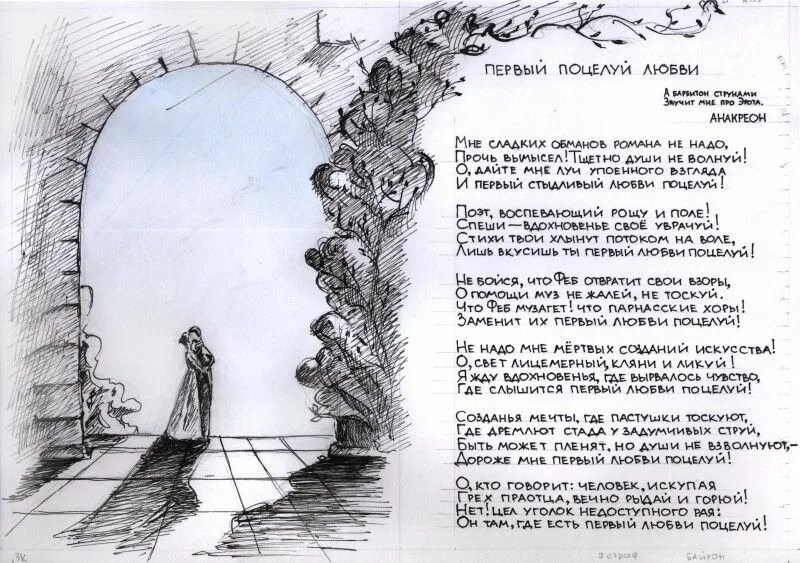 ПЕРВЫЙ ПОЦЕЛУЙ ЛЮБВИ
А БАРБИТОН СТРУНАМИ
ЗВУЧИТ МНЕ ПРО ЭРОТА.
АНАКРЕОН
МНЕ СЛАДКИХ ОБМАНОВ РОМАНА НЕ НАДО,
ПРОЧЬ ВЫМЫСЕЛ! ТЩЕТНО ДУШИ НЕ ВОЛНУЙ!
О, ДАЙТЕ МНЕ ЛУЧ УПОЕННОГО ВЗГЛЯДА
И ПЕРВЫЙ СТЫДЛИВЫЙ ЛЮБВИ ПОЦЕЛУЙ!
ПОЭТ, ВОСПЕВАЮЩИЙ РОЩУ И ПОЛЕ!
СПЕШИ — ВДОХНОВЕНЬЕ СВОЁ УВРАЧУЙ!
СТИХИ ТВОИ ХЛЫНУТ ПОТОКОМ НА ВОЛЕ,
ЛИШЬ ВКУСИШЬ ТЫ ПЕРВЫЙ ЛЮБВИ ПОЦЕЛУЙ!
НЕ БОЙСЯ, ЧТО ФЕБ ОТВРАТИТ СВОИ ВЗОРЫ,
О ПОМОЩИ МУЗ НЕ ЖАЛЕЙ, НЕ ТОСКУЙ.
ЧТО ФЕБ МУЗАГЕТ! ЧТО ПАРНАССКИЕ ХОРЫ!
ЗАМЕНИТ ИХ ПЕРВЫЙ ЛЮБВИ ПОЦЕЛУЙ!
НЕ НАДО МНЕ МЁРТВЫХ СОЗДАНИЙ ИСКУССТВА!
О, СВЕТ ЛИЦЕМЕРНЫЙ, КЛЯНИ И ЛИКУЙ!
Я ЖДУ ВДОХНОВЕНЬЯ, ГДЕ ВЫРВАЛОСЬ ЧУВСТВО,
ГДЕ СЛЫШИТСЯ ПЕРВЫЙ ЛЮБВИ ПОЦЕЛУЙ!
СОЗДАНЬЯ МЕЧТЫ, ГДЕ ПАСТУШКИ ТОСКУЮТ,
ГДЕ ДРЕМЛЮТ СТАДА У ЗАДУМЧИВЫХ СТРУЙ,
БЫТЬ МОЖЕТ ПЛЕНЯТ, НО ДУШИ НЕ ВЗВОЛНУЮТ,—
ДОРОЖЕ МНЕ ПЕРВЫЙ ЛЮБВИ ПОЦЕЛУЙ!
О, КТО ГОВОРИТ: ЧЕЛОВЕК, ИСКУПАЯ
ГРЕХ ПРАОТЦА, ВЕЧНО РЫДАЙ И ГОРЮЙ!
НЕТ! ЦЕЛ УГОЛОК НЕДОСТУПНОГО РАЯ:
ОН ТАМ, ГДЕ ЕСТЬ ПЕРВЫЙ ЛЮБВИ ПОЦЕЛУЙ!
БАЙРОН